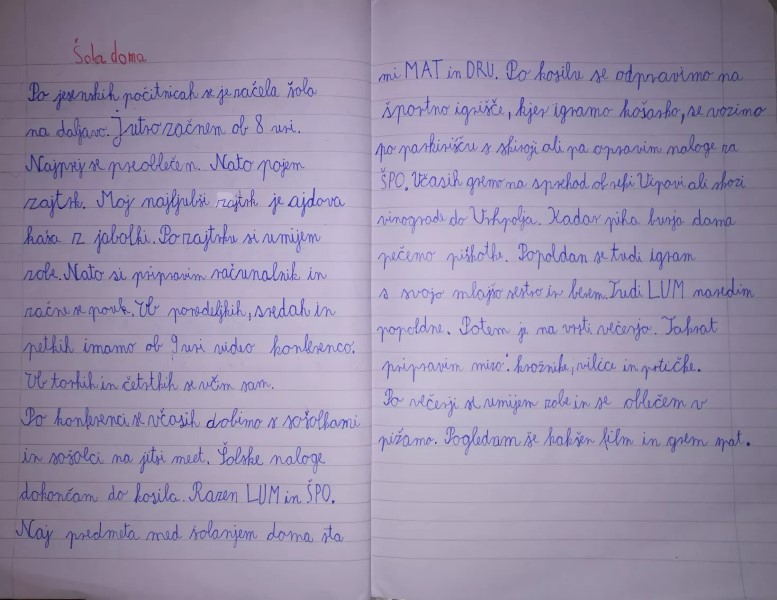 Šola doma
Po jesenskih počitnicah se je začela šola
na daljavo. Jutro začnem ob 8 uri.
Najprej se preoblečem. Nato pojem
zajtrk. Moj najljubši zajtrk je ajdova
kaša z jabolki. Po zajtrku si umijem
zobe. Nato si pripravim računalnik in
začne se pouk. Ob ponedeljkih, sredah in
petkih imamo ob 9 uri video konferenco.
Ob torkih in četrtkih se učim sam.
Po konferenci se včasih dobimo s sošolkami
in sošolci na jitsi meet. Šolske naloge
dokončam do kosila. Razen LUM in ŠPO.
Naj predmeta med šolanjem doma sta
mi MAT in DRU. Po kosilu se odpravimo na
športno igrišče, kjer igramo košarko, se vozimo
po parkirišču s skiroji ali pa opravim naloge za
ŠPO. Včasih gremo na sprehod ob reki Vipavi ali skozi
vinograde do Vrhpolja. Kadar piha burja doma
pečemo piškotke. Popoldan se tudi igram
s svojo mlajšo sestro in berem. Tudi LUM naredim
popoldne. Potem je na vrsti večerja. Takrat
pripravim mizo: krožnike, vilice in prtičke.
Po večerji si umijem zobe in se oblečem v
pižamo. Pogledam še kakšen film in grem spat.